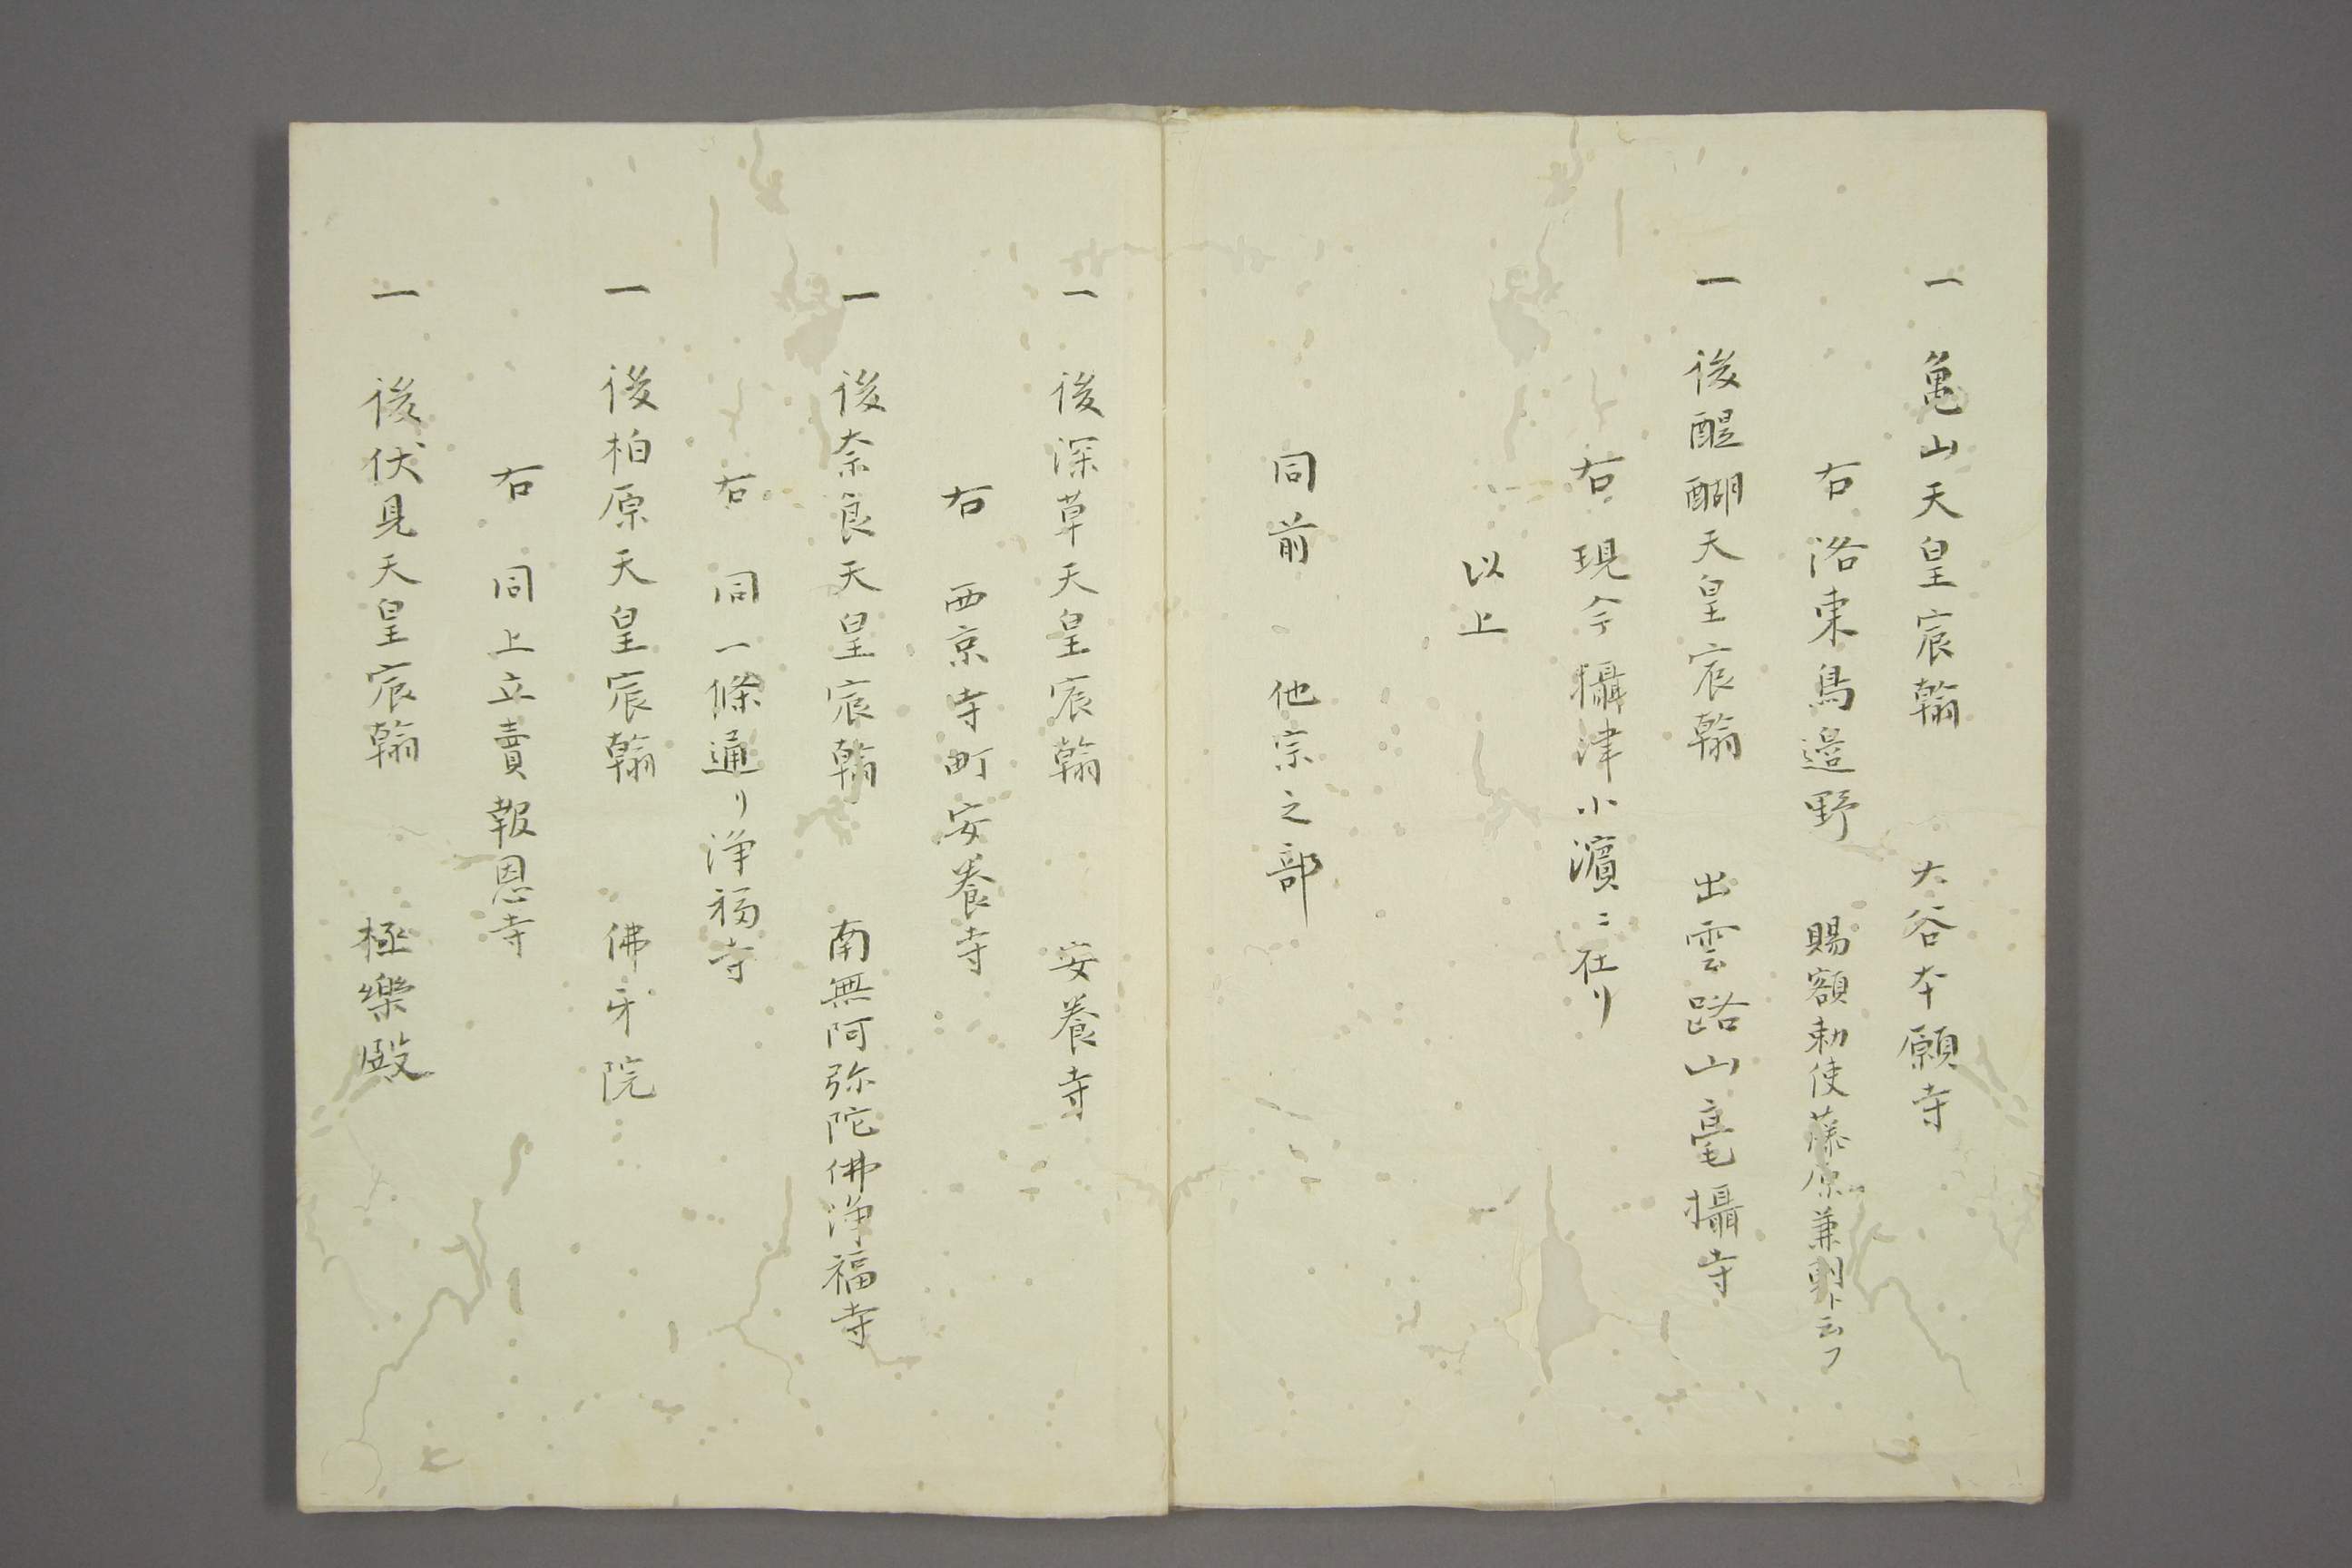 一 亀山天皇宸翰 大谷本願寺
右洛東鳥邉野 賜額勅使藤原兼朝ト云フ
一 後醍醐天皇宸翰 出雲路山毫攝寺
右現今攝津小濵ニ在リ
以上
同前 他宗之部
一 後深草天皇宸翰 安養寺
右 西京寺町安養寺
一 後奈良天皇宸翰 南無阿弥陀佛浄福寺
右 同一條通リ浄福寺
一 後柏原天皇宸翰 佛牙院
右 同上立賣報恩寺
一 後伏見天皇宸翰 極樂殿